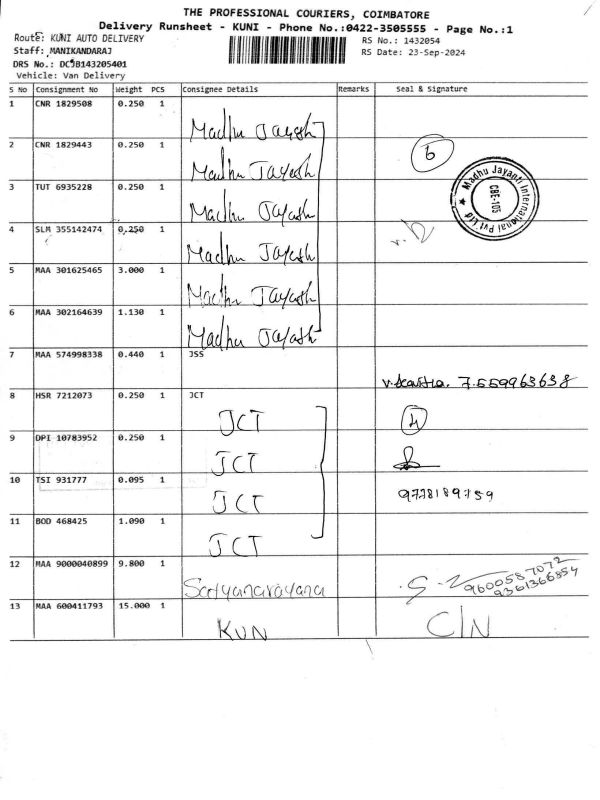 THE PROFESSIONAL COURIERS, COIMBATORE
Delivery Runsheet - KUNI - Phone No.:0422-3505555 - Page No.:1
Route: KUNI AUTO DELIVERY
RS No.: 1432054
Staff: MANIKANDARAJ
RS Date: 23-Sep-2024
DRS No.: DCJB143205401
Vehicle: Van Delivery
S No Consignment No Weight PCS Consignee Details Remarks Seal & Signature
1 CNR 1829508 0.250 1 Madhu Jayesh
2 CNR 1829443 0.250 1 Madhu Jayash 6
3 TUT 6935228 0.250 1 Madhu Jayash
Madhu Jayanti International Pvt Ltd CBE-105
4 SLM 355142474 0.250 1 Madhu Jayesh
5 MAA 301625465 3.000 1 Madhu Jayash
6 MAA 302164639 1.130 1 Madhu Jayash
7 MAA 574998338 0.440 1 JSS 7559963638
8 HSR 7212073 0.250 1 JCT
JCT 4
9 DPI 10783952 0.250 1 JCT
10 TSI 931777 0.095 1 JCT 9778189759
11 BOD 468425 1.090 1 JCT
12 MAA 9000040899 9.800 1 Satyanarayana 9600587072
9361366854
13 MAA 600411793 15.000 1 KUN C/N